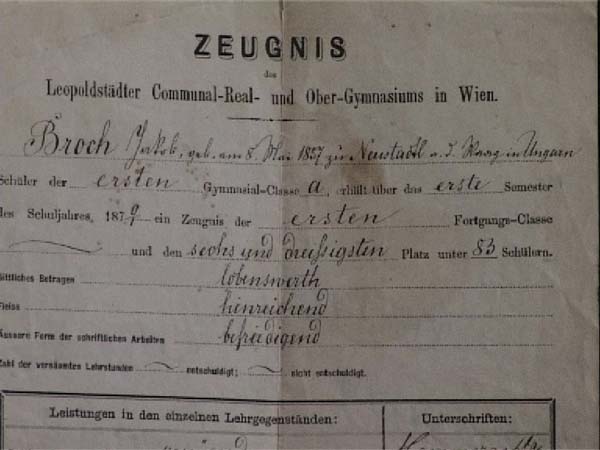 ZEUGNIS
des
Leopoldstädter Communal-Real- und Ober-Gymnasiums in Wien.
Broch Jakob, geb. am 8. Mai 1857 zu Neustadtl a. d. Waag in Ungarn
Schüler der ersten Gymnasial-Classe a, erhält über das erste Semester
des Schuljahres, 187 ein Zeugnis der ersten Fortgangs-Classe
und den sechs und dreißigsten Platz unter 83 Schülern.
Sittliches Betragen lobenswerth
Fleiss hinreichend
Äussere Form der schriftlichen Arbeiten befriedigend
Zahl der versäumten Lehrstunden entschuldigt; nicht entschuldigt.
Leistungen in den einzelnen Lehrgegenständen: Unterschriften: